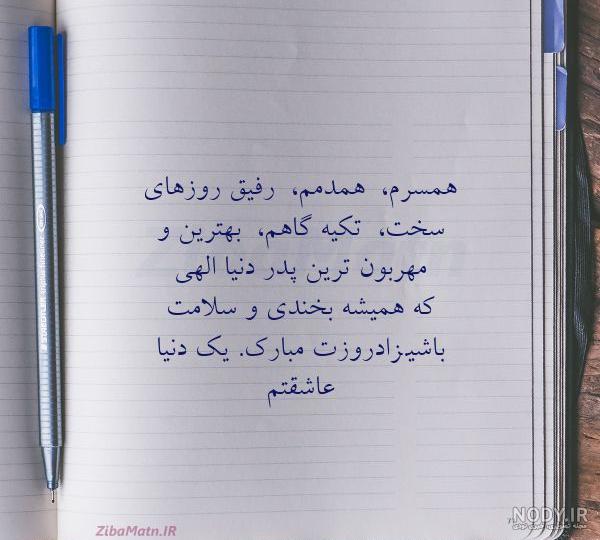 همسرم، همدمم، رفیق روزهای
سخت، تکیه گاهم، بهترین و
مهربون ترین پدر دنیا الهی
که همیشه بخندی و سلامت
باشیزادروزت مبارک. یک دنیا
عاشقتم
ZibaMatn.IR
NODY.IR